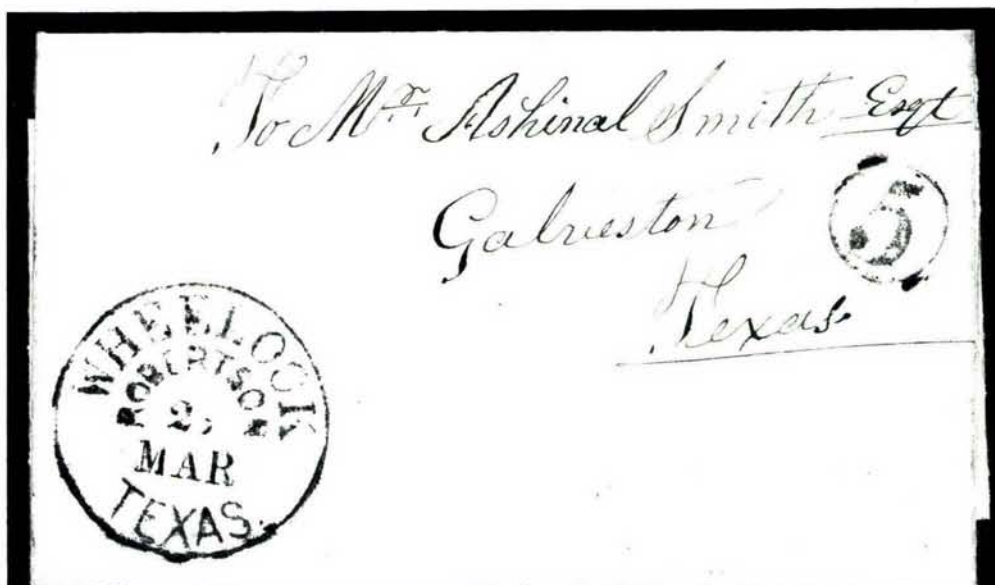 To Mr. Ashinal Smith Esqt
Galveston
5
Texas.
WHEELOCK
ROBERTSON
2,
MAR
TEXAS.